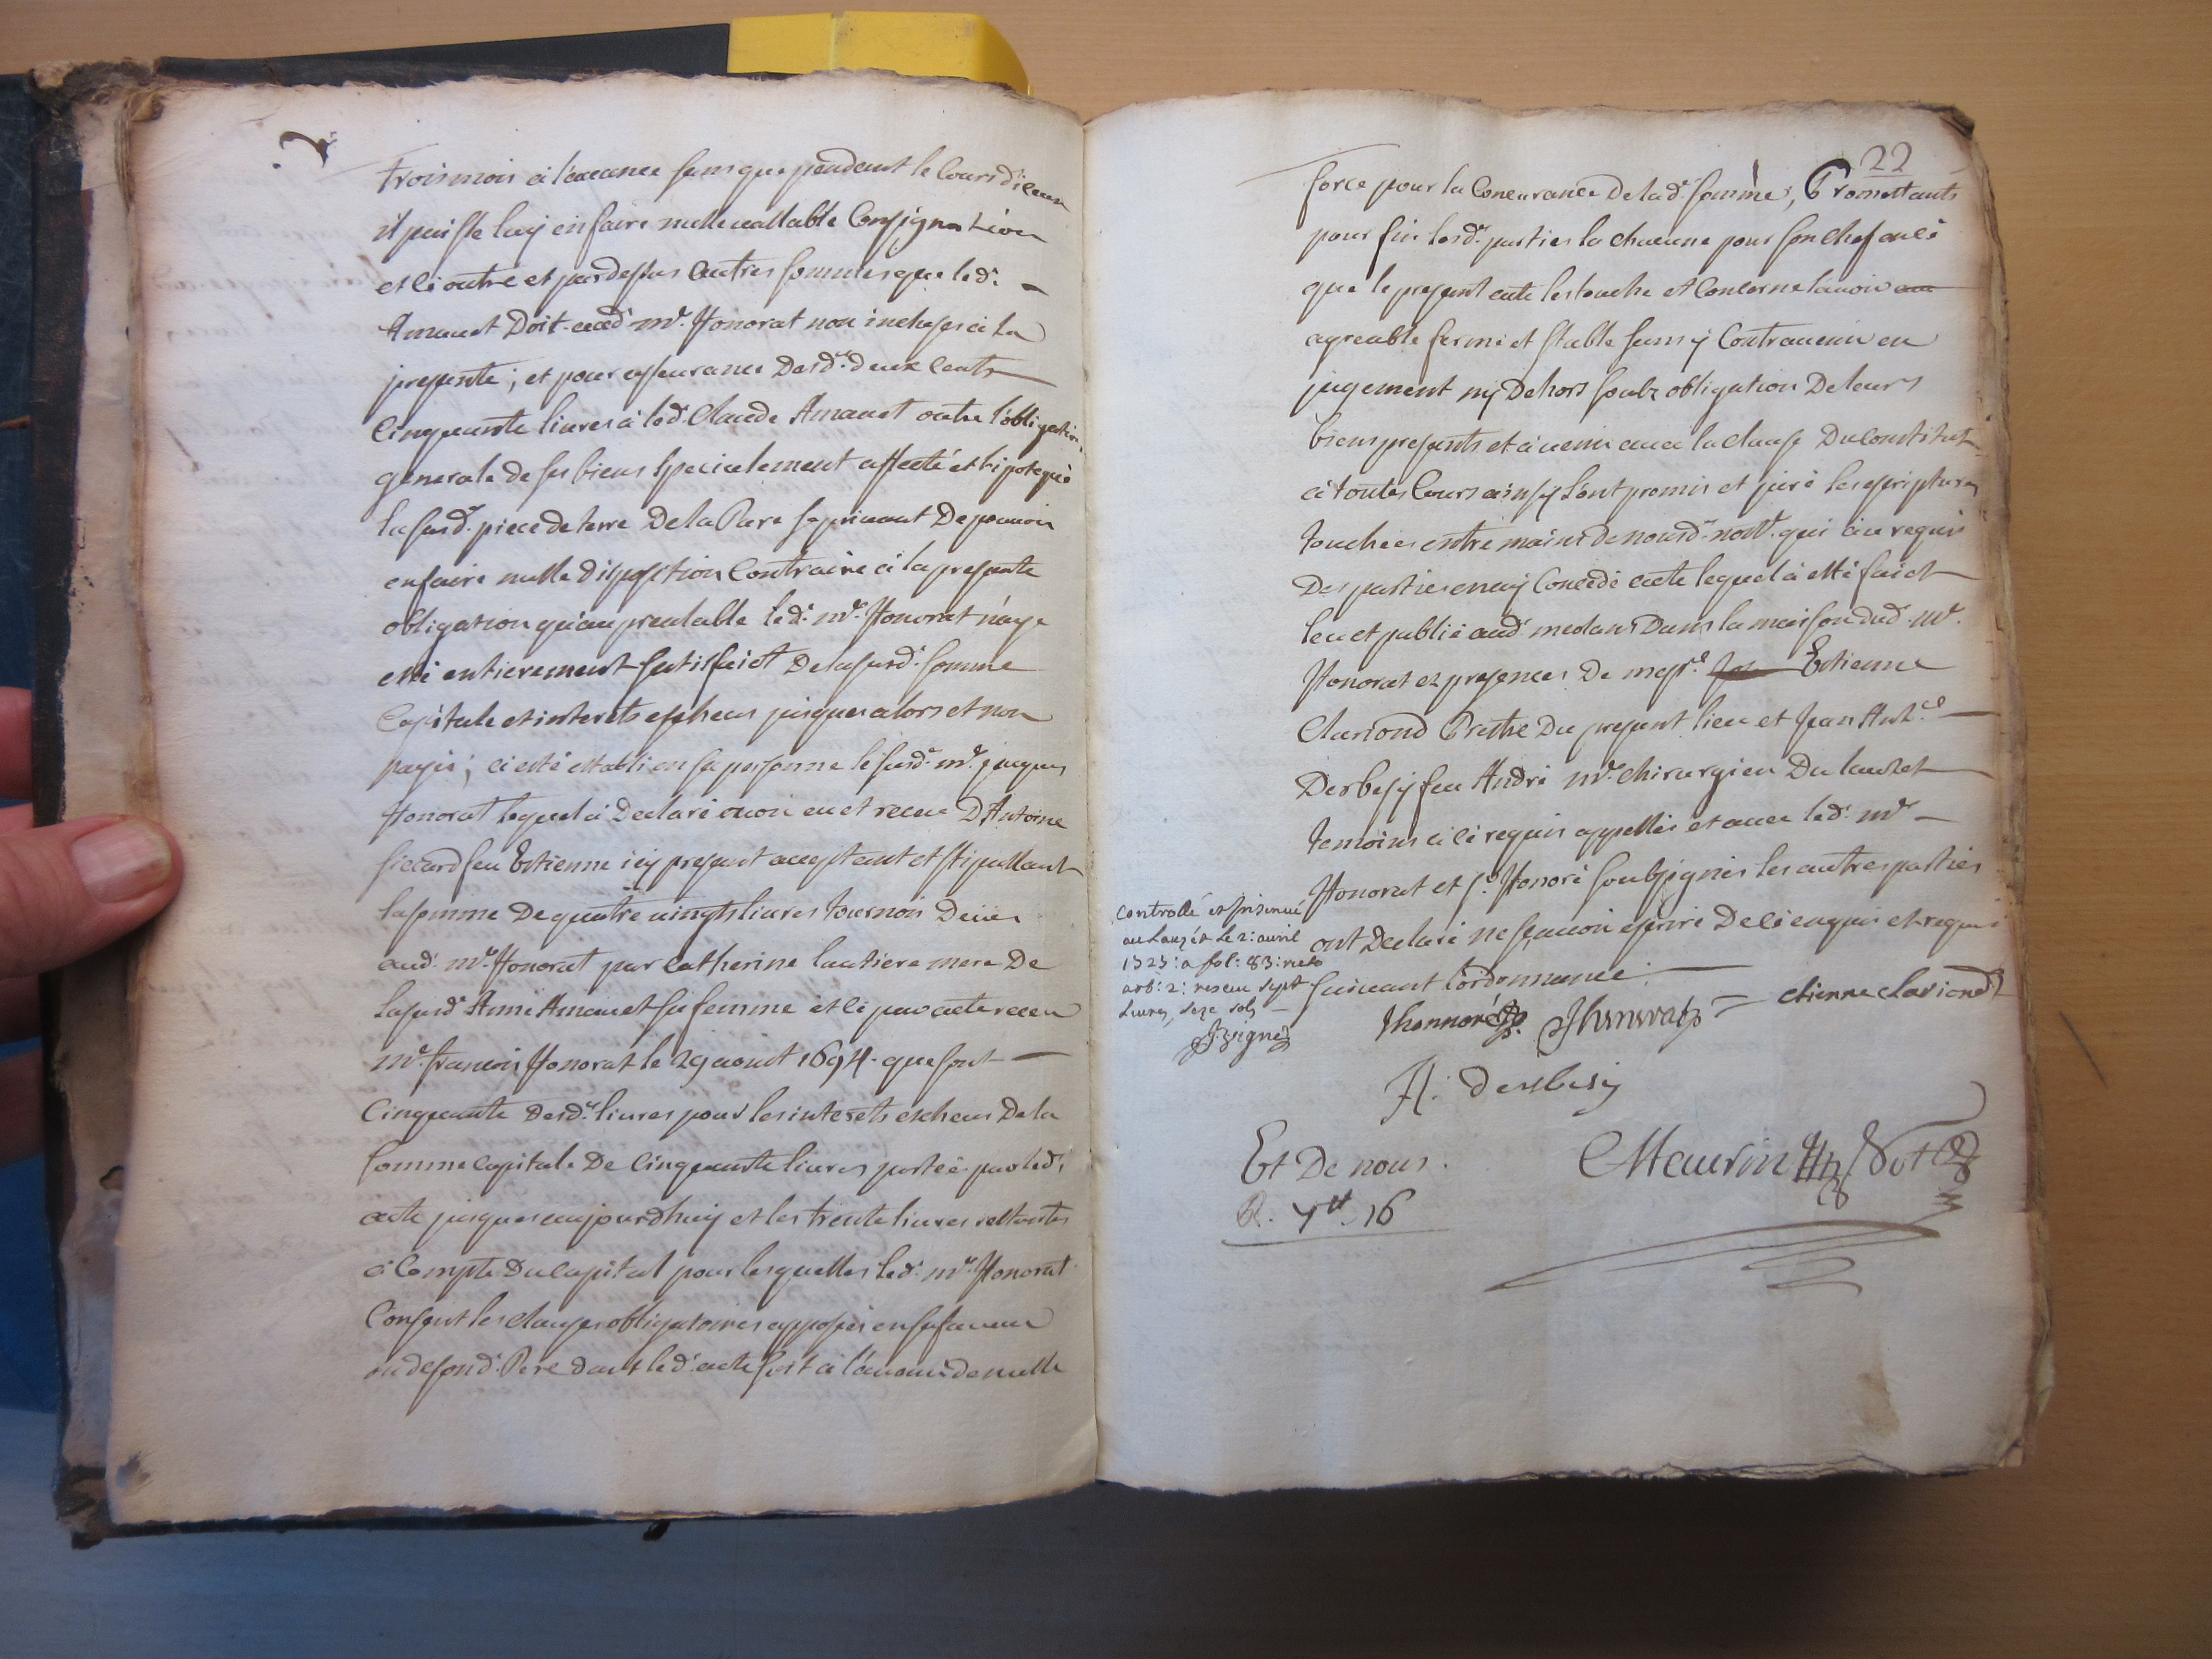 trois mois à l'avance sans que pendant le cours diceux
il puisse luy en faire nulle vallable Consignation
et ce outre et par dessus autres sommes que led.
Amauet Doit aud. Me. Honorat non incluses à la
presente; et pour asseurance Desd. deux cents
Cinquante livres à led. Claude Amauet outre l'obligation
generale de ses biens specialement affecté et hipotequé
la susd. piece de terre De la Pare se privant De pouvoir
en faire nulle disposition Contraire à la presente
obligation qu'au prealable led. Me. Honorat n'aye
esté entierement satisfaict De la susd. somme
Capitale et interets escheus jusques alors et non
payés; à esté establi en sa personne le susd. Me. jacques
Honorat lequel à Declaré avoir eu et receu D'Antoine
sicard feu Estienne icy present acceptant et stipullant
la somme De quatre vingts livres tournois Deües
aud. Me. Honorat par Catherine lautiere mere De
la susd. Anne Amauet sa femme et ce par acte receu
Me. francois Honorat le 29 aoust 1694. que sont
Cinquante desd. livres pour les interets escheus De la
somme capitale De Cinquante livres portée par led.
acte jusques aujourdhuy et les trente livres restantes
à Compte Du capital pour lesquelles led. Me. Honorat
Consent les clauses obligatoires apposées en sa faveur
ou de sond. Pere dans led. acte soit à l'avenir de nulle
22
force pour la Concurance De lad. somme, Promettants
pour fin lesd. parties la chacune pour son chef en ce
que le present acte les touche et Concerne l'avoir
agreable ferme et stable sans y Contravenir en
jugement ny Dehors soubz obligation De leurs
biens presents et à venir avec la clause Du Constitut
à toutes Cours ainsy l'ont promis et juré les escriptures
touchées entre mains de nousd. nott. qui à ce requis
Des parties en ay Concedé acte lequel à esté faict
leu et publié aud. meolans Dans la maison dud. Me.
Honorat ez presences De messre. Estienne
Clariond Prêtre Du present lieu et Jean Anth.
Derbesy feu André Me. chirurgien Du lauzet
temoins à ce requis appellés et avec led. Me
Honorat et sr. Honoré soubsignés les autres parties
ont Declaré ne sçavoir escrire De ce enquis et requis
suivant l'ordonnance.
controllé et Insinué
au Lauzét le 2: avril
1723: a fol: 83: recto
art: 2: reseu sept
Livres, seze sols
Jhonnoré Jhonnorat etienne clariond
A: derbesy
Et De nous.
Maurin Not
R. 7tt. 16